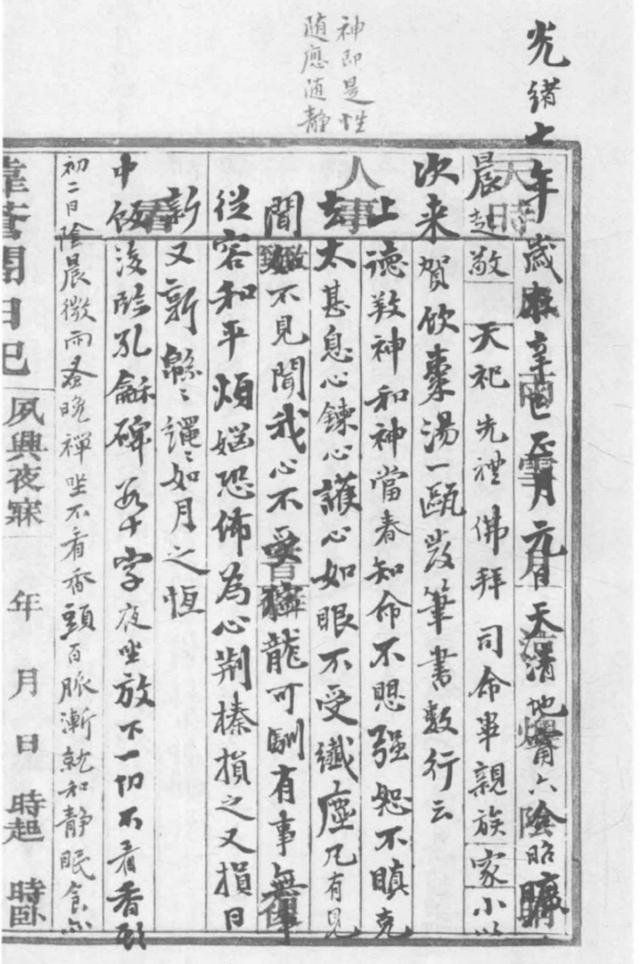 神即是性
随應随静
光緒七年歲在辛巳正月元日天清地甯六陰昭曠
晨起敬天祀先禮佛拜司命畢親族家小以
次来賀飲棗湯一甌發筆書數行云
上德敦神和神當春知命不愳强恕不瞋克
去太甚息心鍊心護心如眼不受纖塵凡有見
聞如不見聞我心不受獰龍可馴有事無事
從容和平煩惱恐怖為心荆榛損之又損日
新又新緜緜繩繩如月之恆
中飯後臨孔龢碑卅字夜坐放下一切不看香頭
初二日陰晨微雨蚤晚禪坐不看香頭百脈漸就和静眠食亦
日記
夙興夜寐 年 月 日 時起 時卧